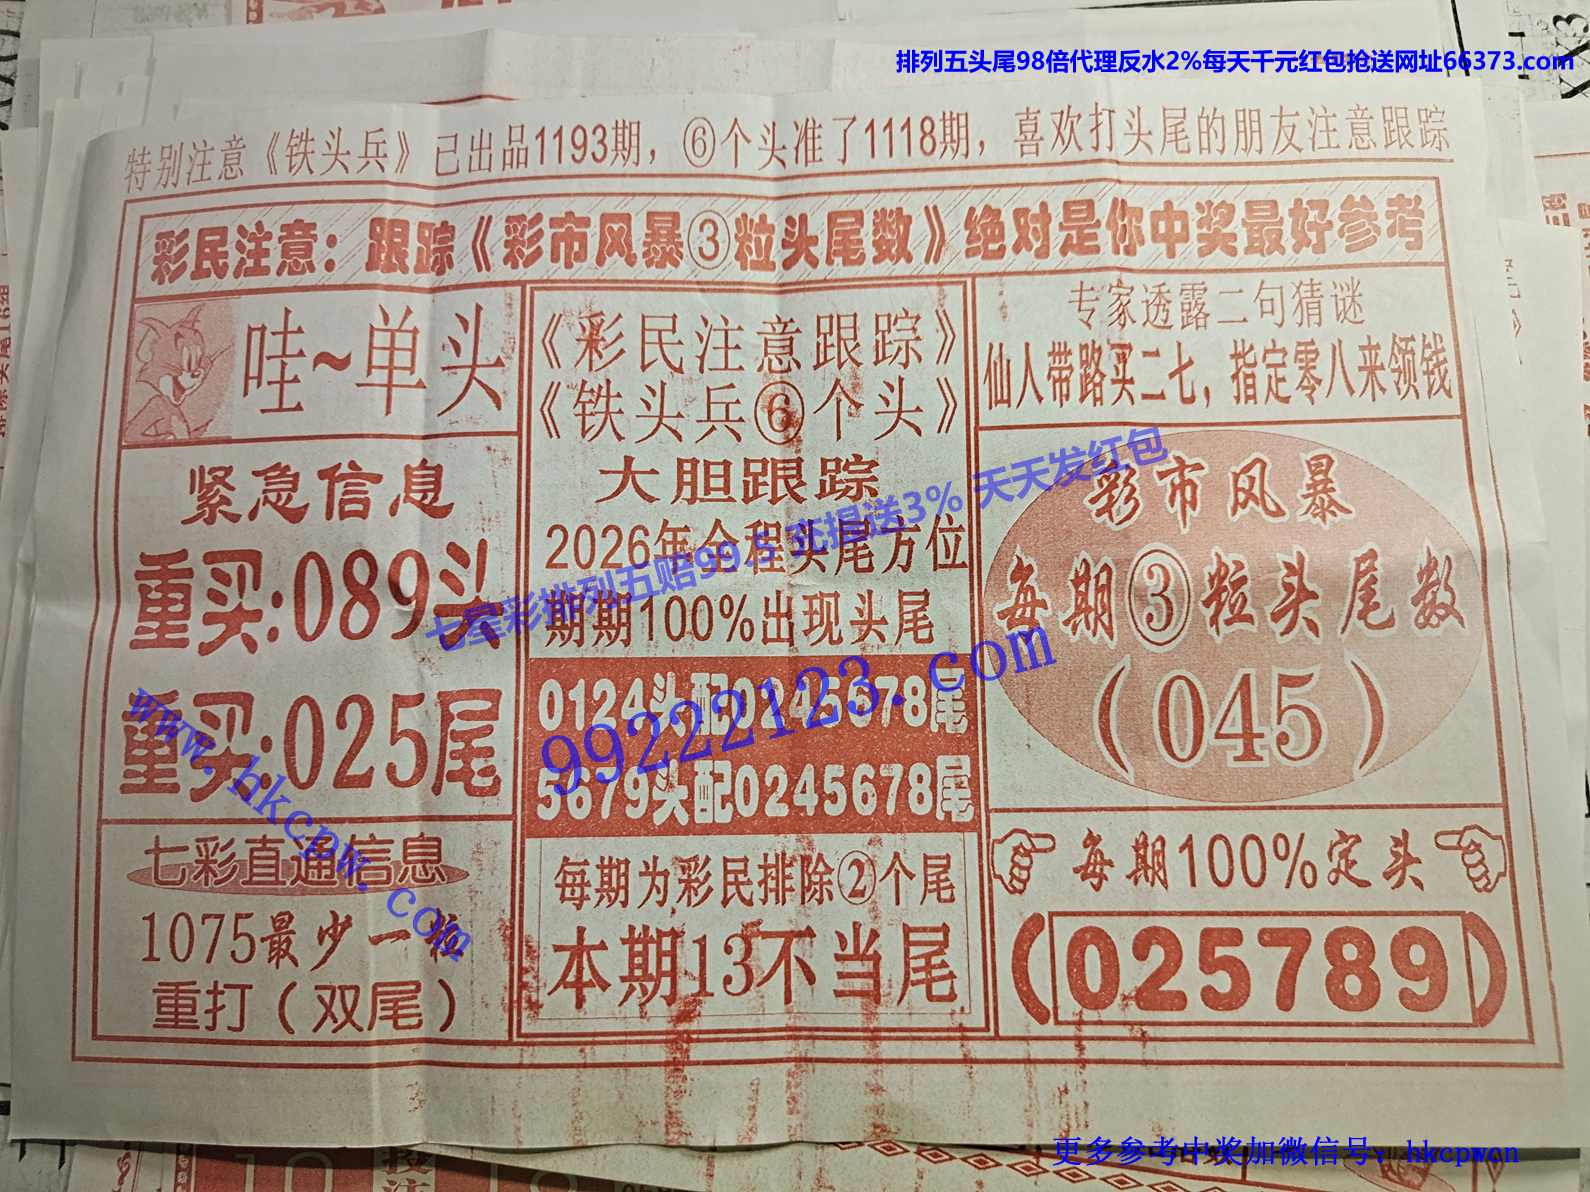 排列五头尾98倍代理反水2%每天千元红包抢送网址66373.com
特别注意《铁头兵》已出品1193期，⑥个头准了1118期，喜欢打头尾的朋友注意跟踪
彩民注意：跟踪《彩市风暴③粒头尾数》绝对是你中奖最好参考
哇~单头
紧急信息
重买:089头
重买:025尾
七彩直通信息
1075最少一粒
重打（双尾）
《彩民注意跟踪》
《铁头兵⑥个头》
大胆跟踪
2026年全程头尾方位
期期100%出现头尾
0124头配0245678尾
5679头配0245678尾
每期为彩民排除②个尾
本期13不当尾
专家透露二句猜谜
仙人带路买二七，指定零八来领钱
彩市风暴
每期③粒头尾数
（045）
每期100%定头
（025789）
七星彩排列五赔99.5 充提送3% 天天发红包
99222123.com
www.hkcpw.com
更多参考中奖加微信号：hkcpwcn